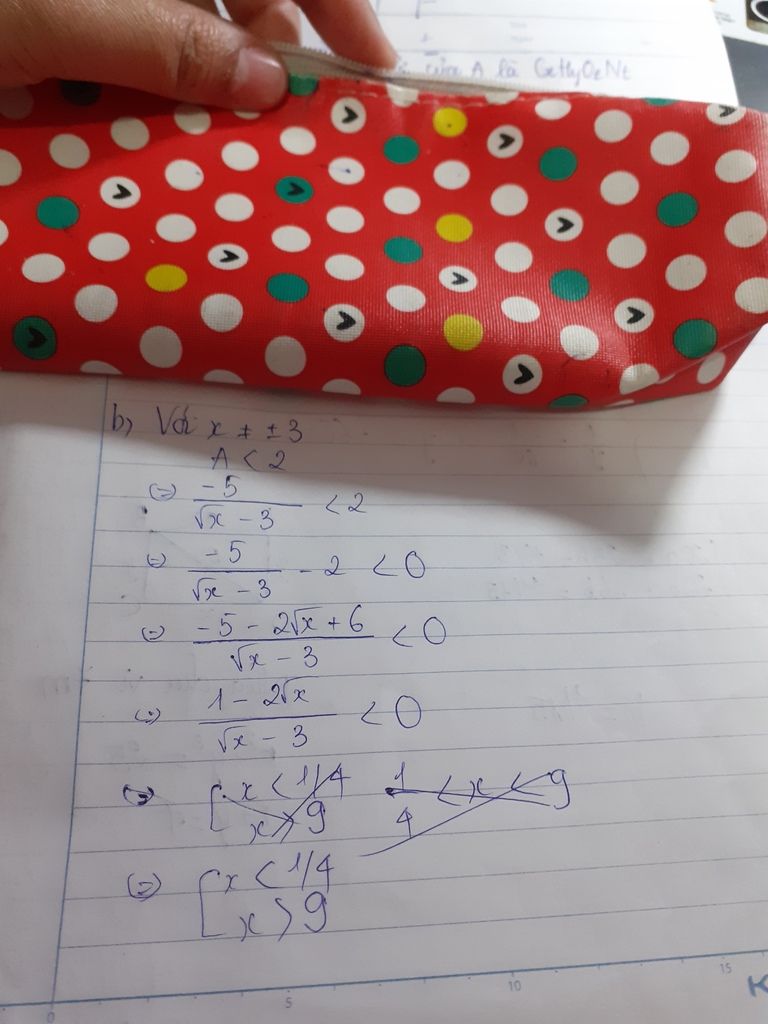 của A là CxHyOzNt
b, Với x ≠ ±3
A < 2
(=) -5/(√x - 3) < 2
(=) -5/(√x - 3) - 2 < 0
(=) (-5 - 2√x + 6)/(√x - 3) < 0
(=) (1 - 2√x)/(√x - 3) < 0
(=) [ x < 1/4 1/4 < x < 9
x > 9
(=) [ x < 1/4
x > 9
0 5 10 15
K